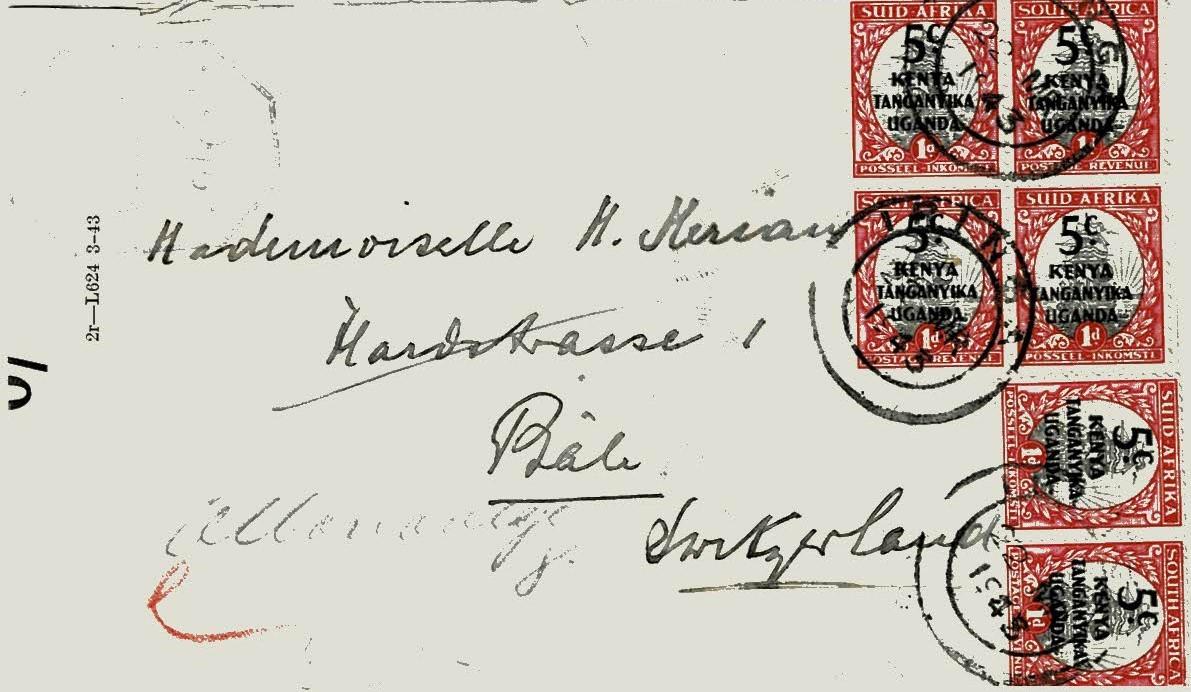 SUID-AFRIKA
5c.
KENYA
TANGANYIKA
UGANDA
1d
POSSEEL-INKOMSTE
SOUTH AFRICA
5c.
KENYA
TANGANYIKA
UGANDA
1d
POSTAGE REVENUE
SOUTH AFRICA
5c.
KENYA
TANGANYIKA
UGANDA
1d
POSTAGE REVENUE
SUID-AFRIKA
5c.
KENYA
TANGANYIKA
UGANDA
1d
POSSEEL-INKOMSTE
SUID-AFRIKA
5c.
KENYA
TANGANYIKA
UGANDA
1d
POSSEEL-INKOMSTE
SOUTH AFRICA
5c.
KENYA
TANGANYIKA
UGANDA
1d
POSTAGE REVENUE
2r—L624 3-43
Mademoiselle H. Merian
Hardstrasse 1
Bâle
Switzerland